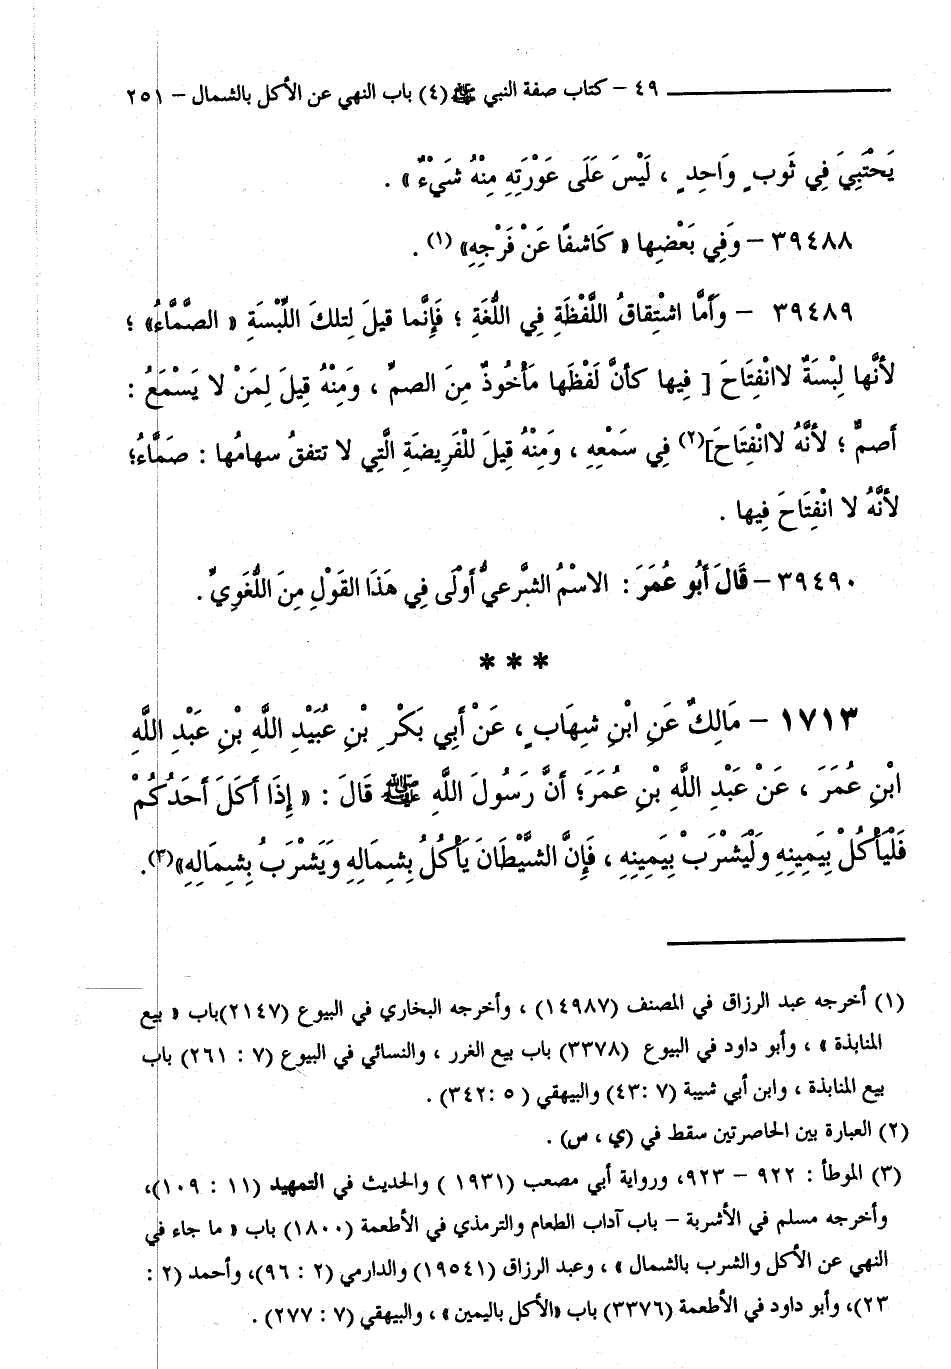 ٤٩ – كتاب صفة النبي ﷺ (٤) باب النهي عن الأكل بالشمال – ٢٥١
يَحْتَبِيَ فِي ثَوبٍ وَاحِدٍ ، لَيْسَ عَلَى عَوْرَتِهِ مِنْهُ شَيْءٌ » .
٣٩٤٨٨ – وَفِي بَعْضِها « كَاشفًا عَنْ فَرْجِهِ» (١) .
٣٩٤٨٩ – وَأَمَّا اشْتِقاقُ اللَّفْظَةِ فِي اللُّغَةِ ؛ فَإِنَّما قيلَ لِتلكَ اللِّبْسَةِ « الصَّمَّاءُ» ؛
لأنَّها لِبْسَةٌ لاانْفِتَاحَ [ فِيها كأنَّ لَفْظَها مَأْخُوذٌ مِنَ الصمِّ ، وَمِنْهُ قِيلَ لِمَنْ لا يَسْمَعُ :
أصمٌّ ؛ لأنَّهُ لاانْفِتَاحَ](٢) فِي سَمْعِهِ ، وَمِنْهُ قِيلَ للْفَرِيضَةِ الَّتِي لا تتفقُ سهامُها : صَمَّاءُ؛
لأنَّهُ لا انْفِتَاحَ فِيها .
٣٩٤٩٠ – قَالَ أَبُو عُمَرَ : الاسْمُ الشَّرعيُّ أَوْلَى فِي هَذَا القَوْلِ مِنَ اللُّغَوِيِّ .
* * *
١٧١٣ – مَالِكٌ عَنِ ابْنِ شِهَابٍ ، عَنْ أَبِي بَكْرِ بْنِ عُبَيْدِ اللَّهِ بْنِ عَبْدِ اللَّهِ
ابْنِ عُمَرَ ، عَنْ عَبْدِ اللَّهِ بْنِ عُمَرَ؛ أنَّ رَسُولَ اللَّهِ ﷺ قَالَ : « إِذَا أَكَلَ أَحَدُكُمْ
فَلْيَأْكُلْ بِيَمِينِهِ وَلْيَشْرَبْ بِيَمِينِهِ ، فَإِنَّ الشَّيْطَانَ يَأْكُلُ بِشِمَالِهِ وَيَشْرَبُ بِشِمَالِهِ»(٣).
(١) أخرجه عبد الرزاق في المصنف (١٤٩٨٧) ، وأخرجه البخاري في البيوع (٢١٤٧)باب « بيع
المنابذة » ، وأبو داود في البيوع (٣٣٧٨) باب بيع الغرر ، والنسائي في البيوع (٧ : ٢٦١) باب
بيع المنابذة ، وابن أبي شيبة (٧ :٤٣) والبيهقي ( ٥ :٣٤٢) .
(٢) العبارة بين الحاصرتين سقط في (ي ، س) .
(٣) الموطأ : ٩٢٢ – ٩٢٣، ورواية أبي مصعب (١٩٣١ ) والحديث في التمهيد (١١ : ١٠٩)،
وأخرجه مسلم في الأشربة – باب آداب الطعام والترمذي في الأطعمة (١٨٠٠) باب « ما جاء في
النهي عن الأكل والشرب بالشمال » ، وعبد الرزاق (١٩٥٤١) والدارمي (٢ : ٩٦)، وأحمد (٢ :
٢٣)، وأبو داود في الأطعمة (٣٣٧٦) باب «الأكل باليمين» ، والبيهقي (٧ : ٢٧٧) .